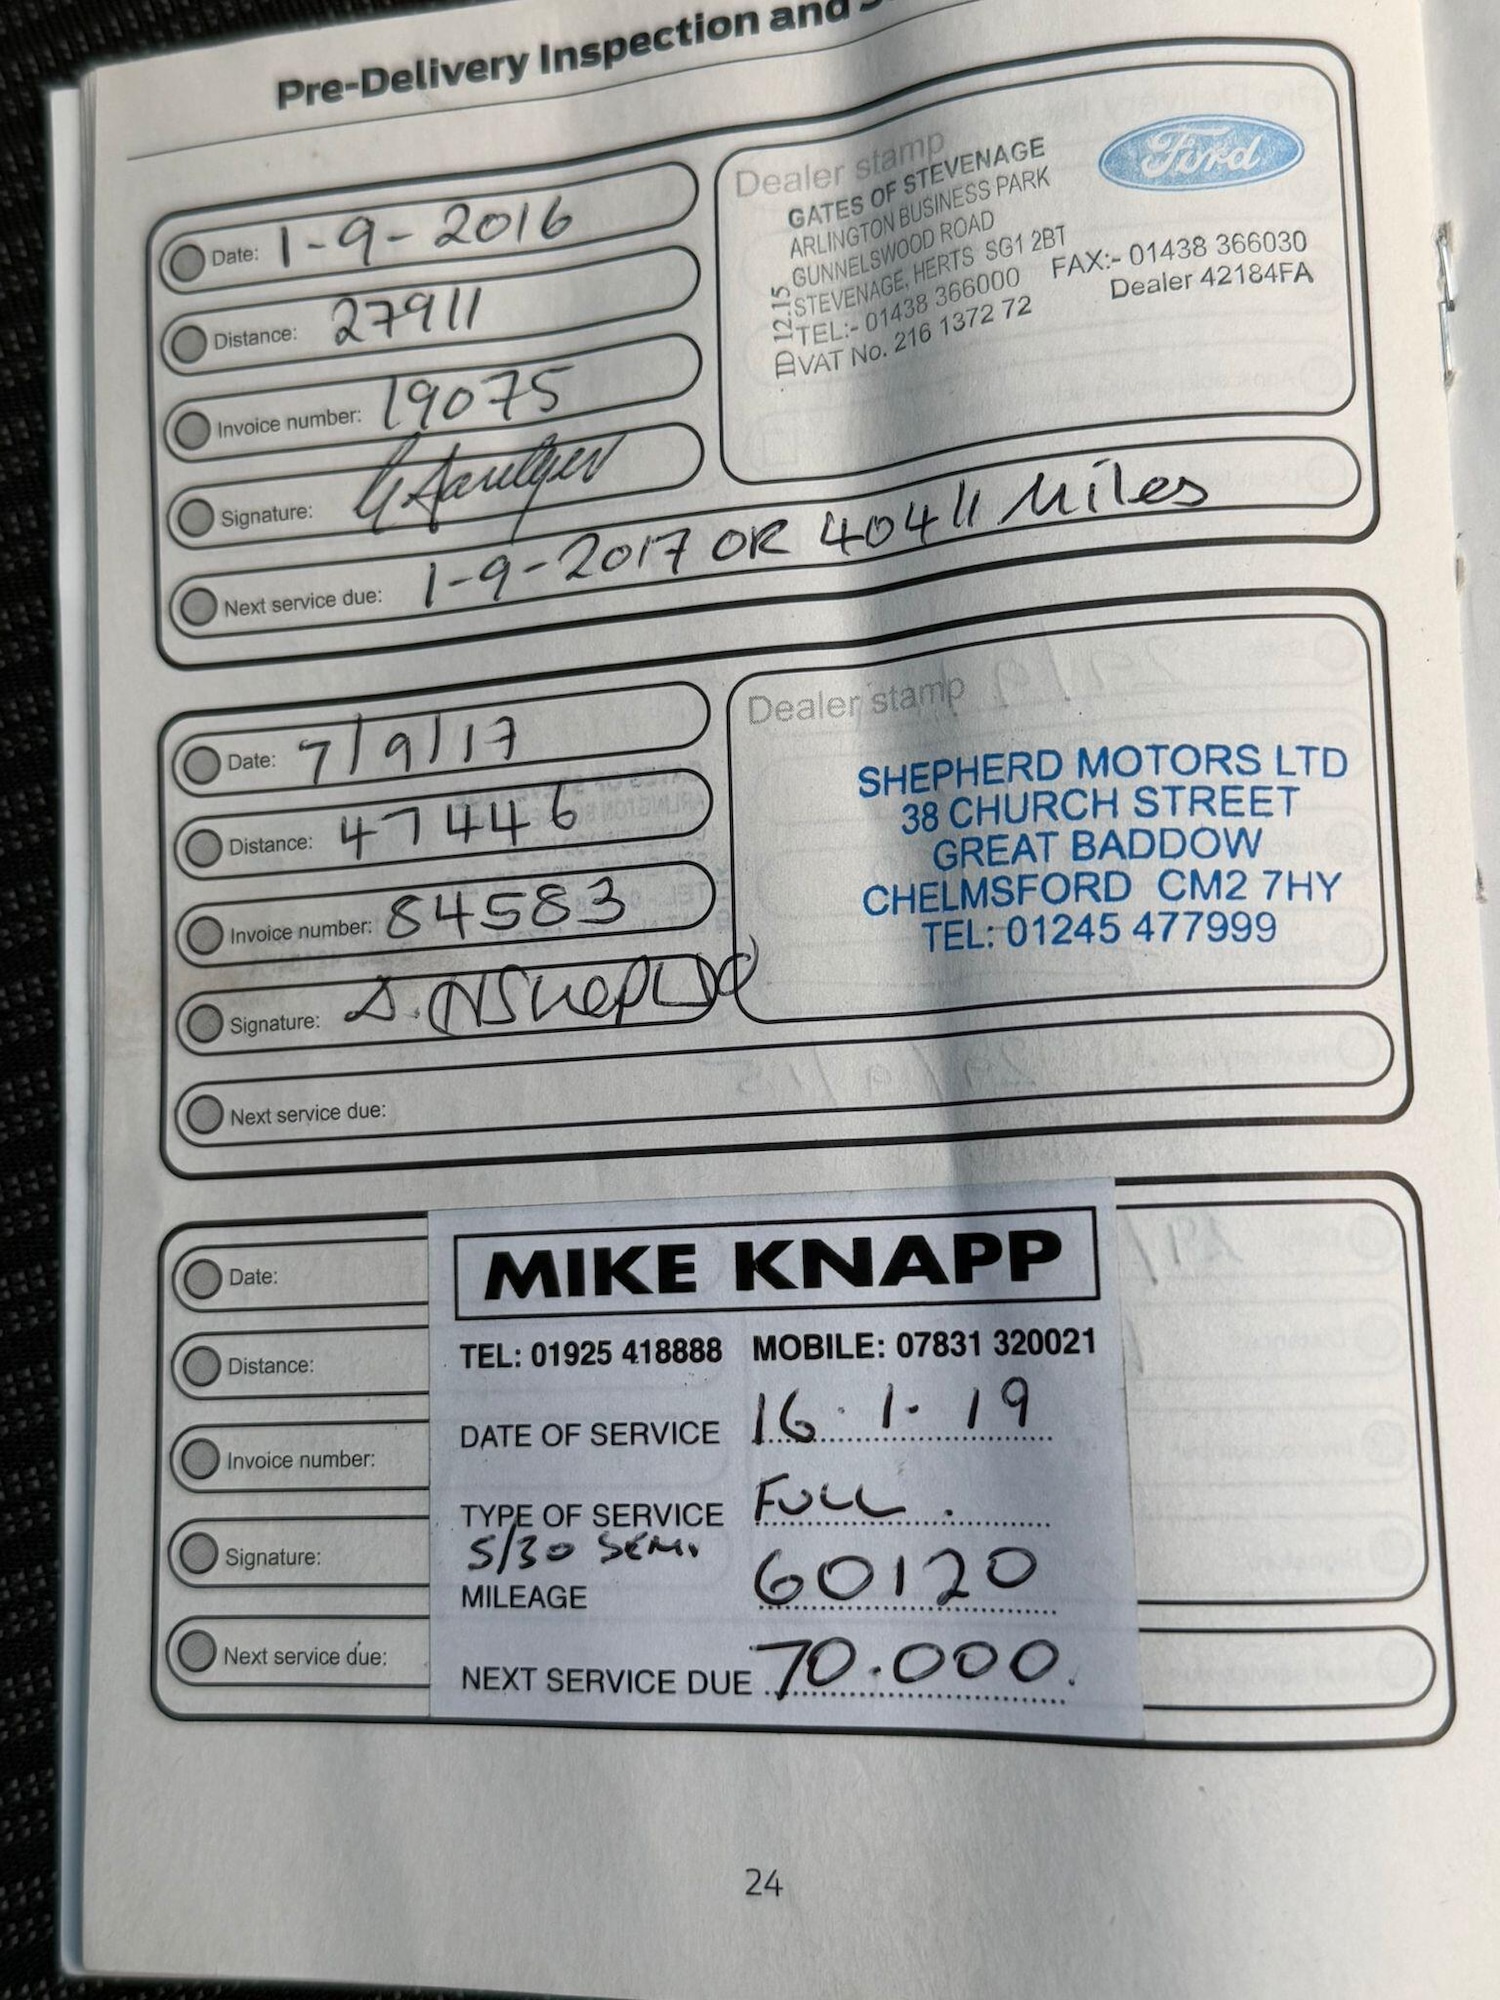 Pre-Delivery Inspection and
Date: 1-9-2016
Distance: 27911
Invoice number: 19075
Signature:
Next service due: 1-9-2017 OR 40411 Miles
Dealer stamp
GATES OF STEVENAGE
ARLINGTON BUSINESS PARK
GUNNELSWOOD ROAD
STEVENAGE, HERTS SG1 2BT
TEL:- 01438 366000 FAX:- 01438 366030
VAT No. 216 1372 72 Dealer 42184FA
12.15
Ford
Date: 7/9/17
Distance: 47446
Invoice number: 84583
Signature:
Next service due:
Dealer stamp
SHEPHERD MOTORS LTD
38 CHURCH STREET
GREAT BADDOW
CHELMSFORD CM2 7HY
TEL: 01245 477999
Date:
Distance:
Invoice number:
Signature:
Next service due:
MIKE KNAPP
TEL: 01925 418888 MOBILE: 07831 320021
DATE OF SERVICE 16.1.19
TYPE OF SERVICE FULL.
5/30 SEMI
MILEAGE 60120
NEXT SERVICE DUE 70.000.
24